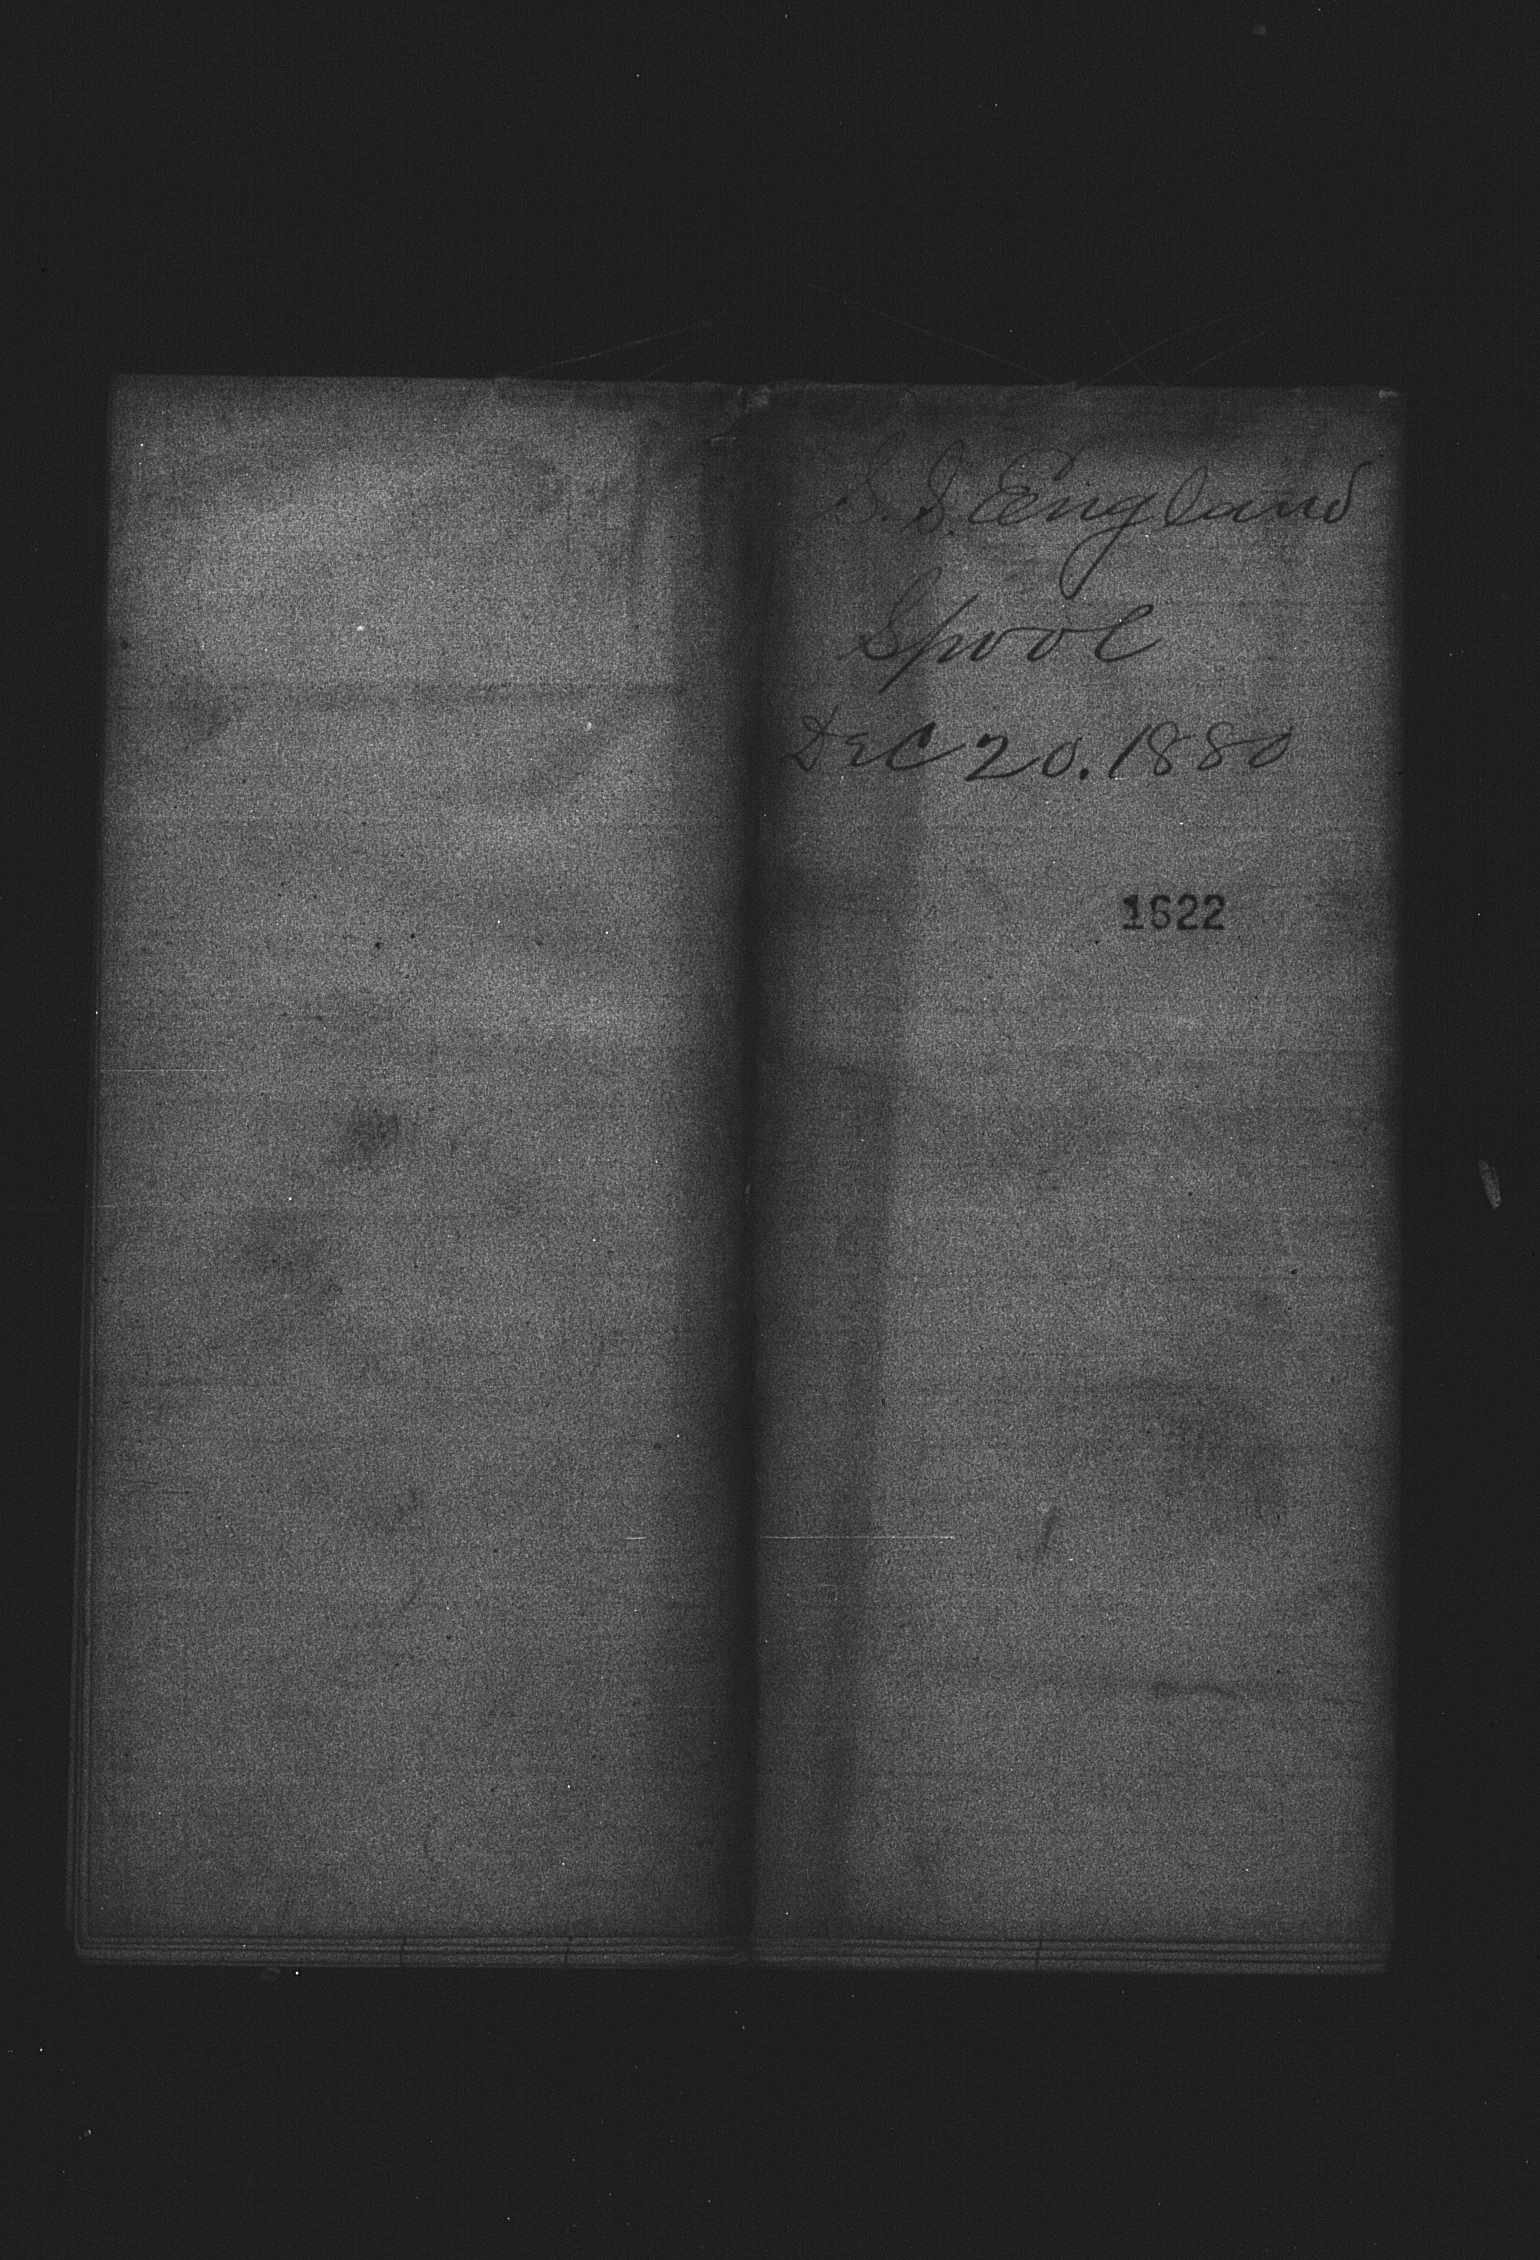 S. S. England
Lpool
Dec 20. 1880
1622